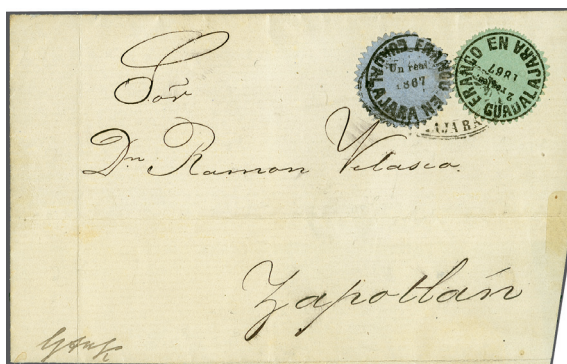 FRANCO EN GUADALAJARA
Un real
1867
FRANCO EN GUADALAJARA
2 reales
1867
LAJARA
Sór
Dn Ramon Velasco.
Zapotlán